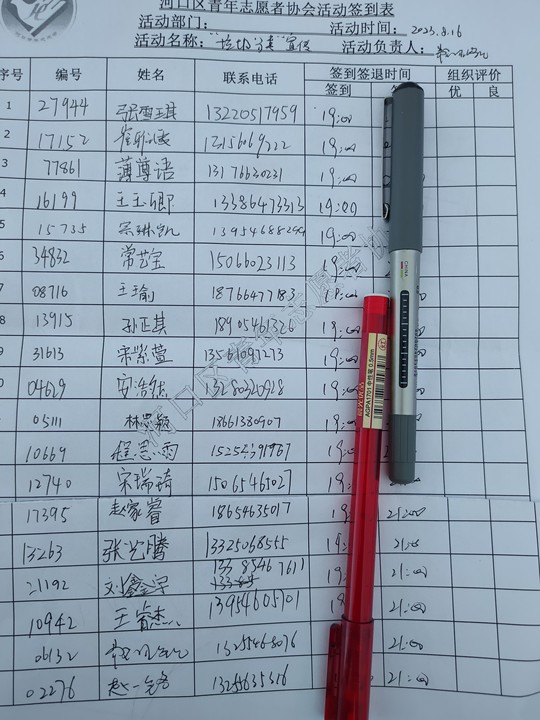 河口区青年志愿者协会活动签到表
活动部门： 活动时间：2023.8.16
活动名称："垃圾分类"宣传 活动负责人：
序号 编号 姓名 联系电话 签到签退时间 组织评价
签到 优 良
1 27944 张雪琪 13220517959 19:00
2 17152 19:00
3 77861 薄尊语 13176630231 19:00
4 16199 王玉卿 13386473313 19:00
5 15735 19:00
6 34832 常艺宝 15066023113 19:00
7 08716 王瑜 18766477183 19:00
8 13915 孙正其 18905461326 19:00
9 31613 宋紫萱 13561097273 19:00
0 04629 安浩然 13280320928 19:00
05111 林思颖 18661380907 19:00
10669 程思雨 15254391967 19:
12740 宋瑞琦 15065465027 19:
17395 赵家睿 18654635017 19 21:00
13263 张光腾 13325068555 19: 21:00
21192 刘鑫宇 133 8546 7611 19: 21:00
10942 王睿杰 13954605701 21:00
06132 13255468076 21:00
02276 赵一铭 13255635316 21:00
河口区青年志愿者协
CHINA
AGPA1701 中性笔 0.5mm